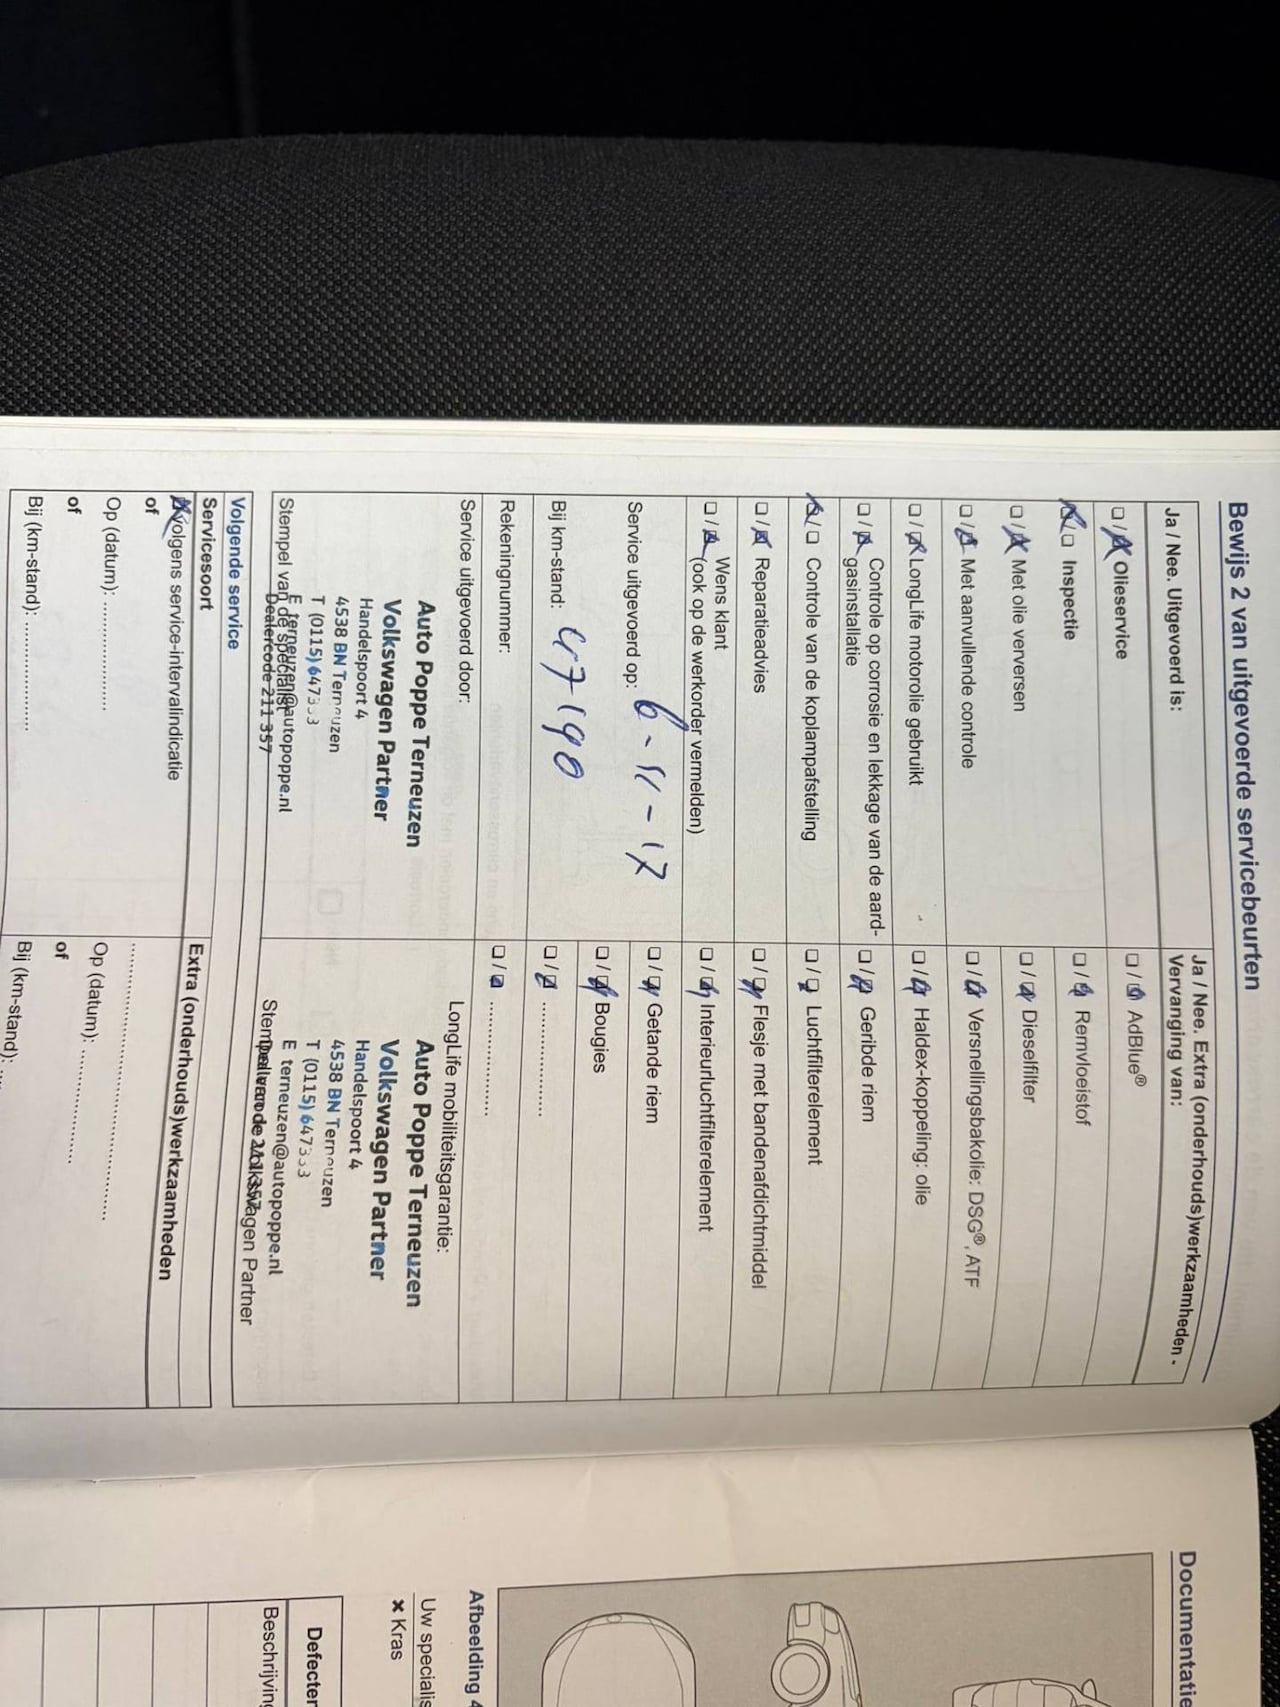 Bewijs 2 van uitgevoerde servicebeurten
Ja / Nee. Uitgevoerd is:
☐ / ☒ Olieservice
☒ / ☐ Inspectie
☐ / ☒ Met olie verversen
☐ / ☒ Met aanvullende controle
☐ / ☒ LongLife motorolie gebruikt
☐ / ☒ Controle op corrosie en lekkage van de aard-
gasinstallatie
☒ / ☐ Controle van de koplampafstelling
☐ / ☒ Reparatieadvies
☐ / ☒ Wens klant
(ook op de werkorder vermelden)
Service uitgevoerd op: 6-11-17
Bij km-stand: 47190
Rekeningnummer:
Service uitgevoerd door:
Auto Poppe Terneuzen
Volkswagen Partner
Handelspoort 4
4538 BN Terneuzen
T (0115) 647333
E terneuzen@autopoppe.nl
Stempel van de specialist
Dealercode 211 357
Ja / Nee. Extra (onderhouds)werkzaamheden -
Vervanging van:
☐ / ☒ AdBlue®
☐ / ☒ Remvloeistof
☐ / ☒ Dieselfilter
☐ / ☒ Versnellingsbakolie: DSG®, ATF
☐ / ☒ Haldex-koppeling: olie
☐ / ☒ Geribde riem
☐ / ☒ Luchtfilterelement
☐ / ☒ Flesje met bandenafdichtmiddel
☐ / ☒ Interieurluchtfilterelement
☐ / ☒ Getande riem
☐ / ☒ Bougies
☐ / ☒ ....................
☐ / ☒ ....................
LongLife mobiliteitsgarantie:
Auto Poppe Terneuzen
Volkswagen Partner
Handelspoort 4
4538 BN Terneuzen
T (0115) 647333
E terneuzen@autopoppe.nl
Stempel van de Volkswagen Partner
Volgende service
Servicesoort
☒ volgens service-intervalindicatie
of
Op (datum): ....................
of
Bij (km-stand): ....................
Extra (onderhouds)werkzaamheden
..............................
Op (datum): ....................
of
Bij (km-stand): ...
Documentati
Afbeelding 4
Uw specialis
× Kras
Defecten
Beschrijving